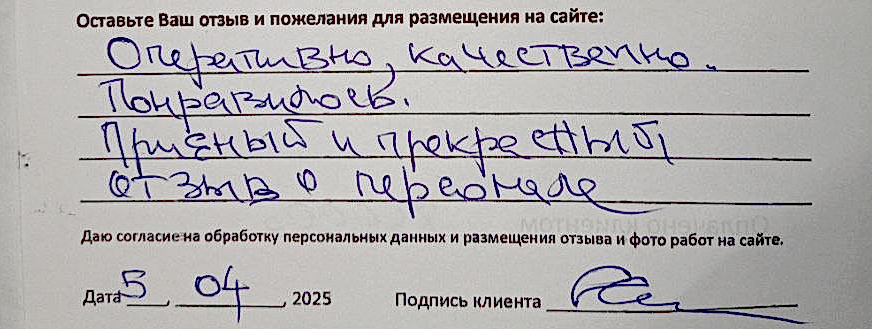 Оставьте Ваш отзыв и пожелания для размещения на сайте:
Оперативно, качественно.
Понравилось.
и прекрасный
отзыв о персонале
Даю согласие на обработку персональных данных и размещения отзыва и фото работ на сайте.
Дата 5, 04, 2025 Подпись клиента